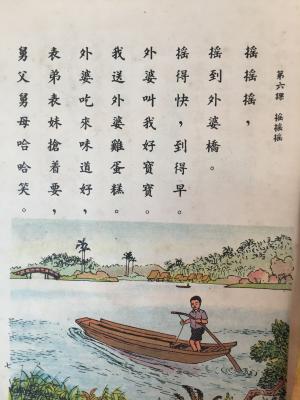 第六課 搖搖搖
搖搖搖，
搖到外婆橋。
搖得快，到得早。
外婆叫我好寶寶。
我送外婆雞蛋糕。
外婆吃來味道好，
表弟表妹搶着要，
舅父舅母哈哈笑。
七